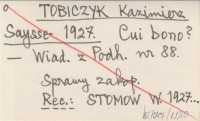 TOBICZYK Kazimierz
Saysse- 1927. Cui bono?
— Wiad. z Podh. nr 88.
Sprawy zakop.
Rec.: STOMÓW W. 1927...